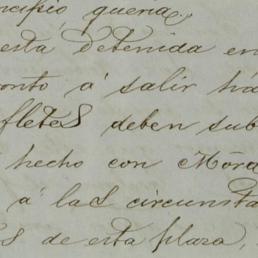 ncipio, queria,
esta detenida en
onto á salir há
fletes deben sub
hecho con Mora
á las circunsta
s de esta plaza,